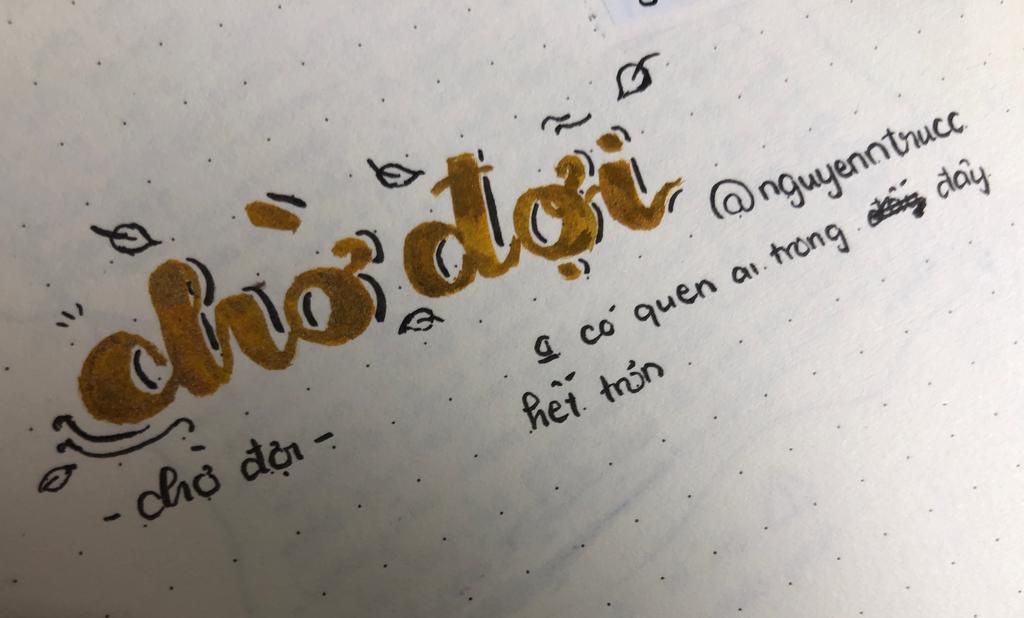 chờ đợi
- chờ đợi -
@nguyenntrucc
a có quen ai trong đây
hết trơn